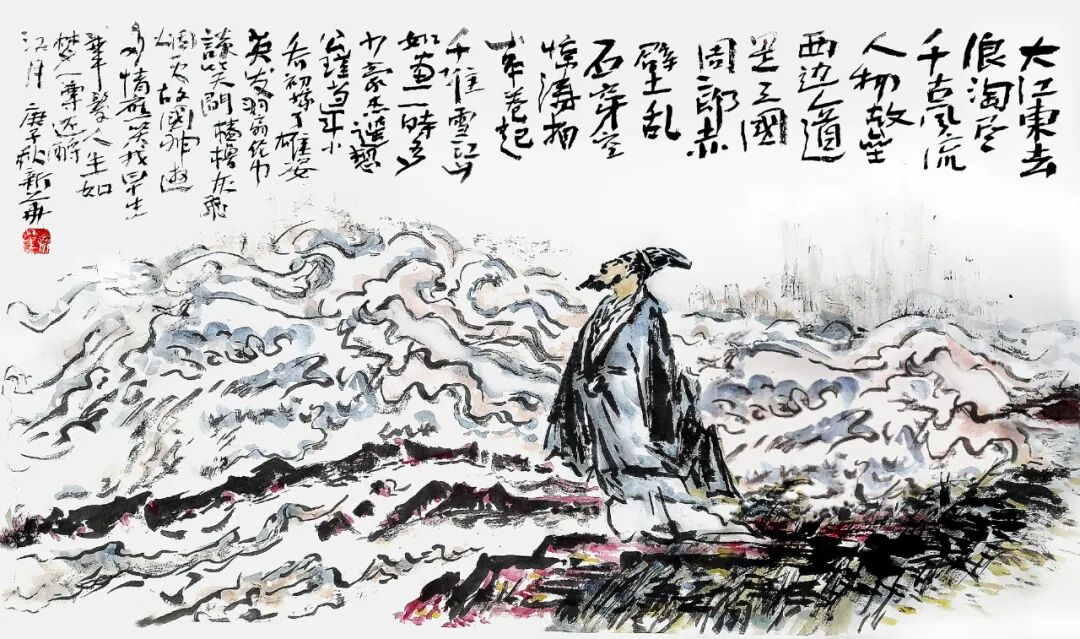 大江東去
浪淘尽
千古風流
人物故壘
西边人道
是三國
周郎赤
壁乱
石穿空
惊涛拍
岸卷起
千堆雪江山
如画一時多
少豪杰遥想
公瑾當年小
乔初嫁了雄姿
英发羽扇纶巾
談笑間樯櫓灰飛
烟灭故國神遊
多情應笑我早生
華髮人生如
梦一尊还酹
江月 庚子秋